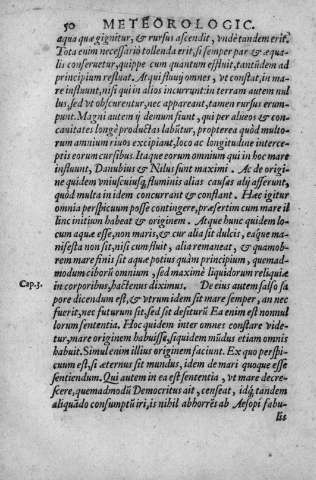 50 METEOROLOGIC.
aqua quæ gignitur, & rursus ascendit, vnde tandem erit.
Tota enim necessariò tollenda erit, si semper par & æqua-
lis conseruetur, quippe cum quantum effluit, tantúdem ad
principium refluat. Atqui fluuij omnes, vt constat, in ma-
re influunt, nisi qui in alios incurrunt: in terram autem nul
lus, sed vt obscurentur, nec appareant, tamen rursus erum-
punt. Magni autem ij demum fiunt, qui per alueos & con-
cauitates longè productas labūtur, propterea quòd multo-
rum amnium riuos excipiant, loco ac longitudine interce-
ptis eorum cursibus. Itaque eorum omnium qui in hoc mare
influunt, Danubius & Nilus sunt maximi. Ac de origi-
ne quidem vniuscuiusq; fluminis alias causas alij afferunt,
quòd multa in idem concurrant & constant. Hæc igitur
omnia perspicuum posse contingere, præsertim cum mare il
linc initium habeat & originem. Atque hunc quidem lo-
cum aquæ esse, non maris, & cur alia sit dulcis, eáque ma-
nifesta non sit, nisi cum fluit, alia remaneat, & quamob-
rem mare finis sit aquæ potius quàm principium, quemad-
modum ciborū omnium, sed maximè liquidorum reliquiæ
in corporibus, hactenus diximus. De eius autem salso sa
Cap. 3. pore dicendum est, & vtrum idem sit mare semper, an nec
fuerit, nec futurum sit, sed sit desiturū Ea enim est nonnul
lorum sententia. Hoc quidem inter omnes constare vide-
tur, mare originem habuisse, siquidem mūdus etiam omnis
habuit. Simul enim illius originem faciunt. Ex quo perspi-
cuum est, si æternus sit mundus, idem de mari quoque esse
sentiendum. Qui autem in ea est sententia, vt mare decre-
scere, quemadmodū Democritus ait, censeat, idq́; tandem
aliquādo consumptū iri, is nihil abhorrēs ab Aesopi fabu-
lis